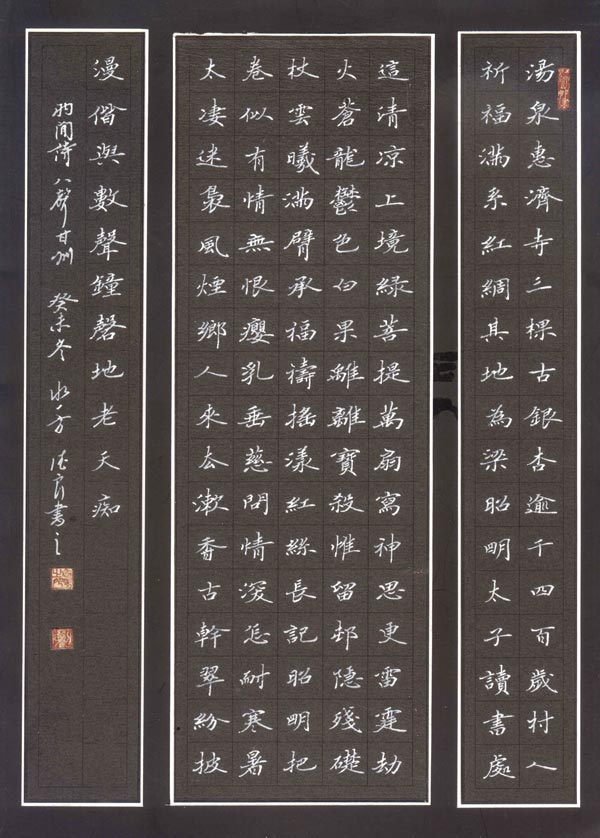 湯泉惠濟寺三棵古銀杏逾千四百歲村人
祈福滿系紅綢其地為梁昭明太子讀書處
這清凉上境綠菩提萬扇寫神思更雷霆劫
火蒼龍鬱色白果離離寶殺惟留邨隱殘礎
杖雲曦滿臂承福禱搖漾紅絲長記昭明把
卷似有情無恨癭乳垂慈問情深怎耐寒暑
太凄迷裊風煙鄉人來去漱香古幹翠紛披
漫偕與數聲鐘磬地老天痴
八聲甘州 癸未冬 書之